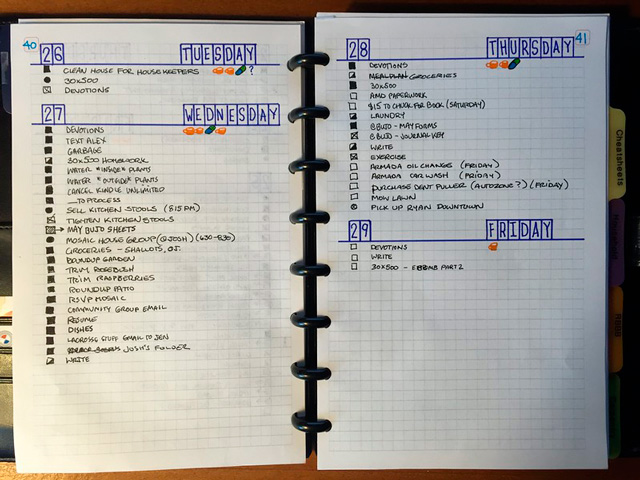 40
26 TUESDAY
CLEAN HOUSE FOR HOUSEKEEPERS ?
30x500
DEVOTIONS
27 WEDNESDAY
DEVOTIONS
TEXT ALEX
GARBAGE
30x500 HOMEWORK
WATER *INSIDE* PLANTS
WATER *OUTSIDE* PLANTS
CANCEL KINDLE UNLIMITED
TO PROCESS
SELL KITCHEN STOOLS (8:15 PM)
TIGHTEN KITCHEN STOOLS
MAY BUJO SHEETS
MOSAIC HOUSE GROUP (@JOSH) (630-830)
GROCERIES - SHALLOTS, OJ
ROUNDUP GARDEN
TRIM ROSEBUSH
TRIM RASPBERRIES
ROUNDUP PATIO
RSVP MOSAIC
COMMUNITY GROUP EMAIL
RESUME
DISHES
LACROSSE STUFF EMAIL TO JEN
JOSH'S FOLDER
WRITE
41
28 THURSDAY
DEVOTIONS
MEAL PLAN GROCERIES
30x500
AMD PAPERWORK
$15 TO CHUCK FOR BOOK (SATURDAY)
LAUNDRY
BBUJO - MAY FORMS
BBUJO - JOURNAL KEY
WRITE
EXERCISE
ARMADA OIL CHANGES (FRIDAY)
ARMADA CAR WASH (FRIDAY)
PURCHASE DENT PULLER (AUTOZONE?) (FRIDAY)
MOW LAWN
PICK UP RYAN DOWNTOWN
29 FRIDAY
DEVOTIONS
WRITE
30x500 - EBOMB PART 2
Cheatsheets